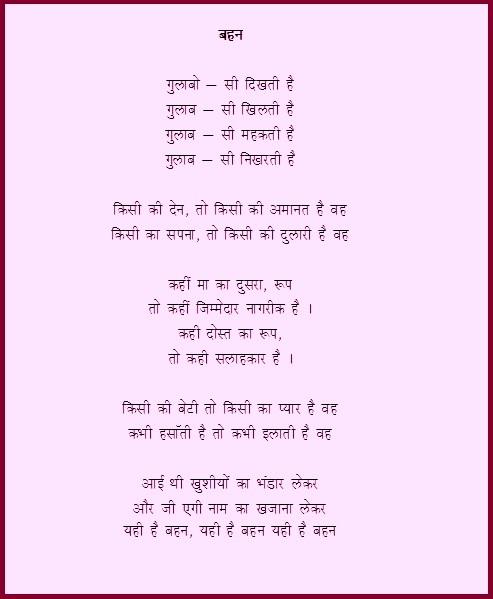 बहन
गुलाबो – सी दिखती है
गुलाब – सी खिलती है
गुलाब – सी महकती है
गुलाब – सी निखरती है
किसी की देन, तो किसी की अमानत है वह
किसी का सपना, तो किसी की दुलारी है वह
कहीं मा का दुसरा, रूप
तो कहीं जिम्मेदार नागरीक है ।
कही दोस्त का रूप,
तो कही सलाहकार है ।
किसी की बेटी तो किसी का प्यार है वह
कभी हसॉती है तो कभी इलाती है वह
आई थी खुशीयों का भंडार लेकर
और जी एगी नाम का खजाना लेकर
यही है बहन, यही है बहन यही है बहन